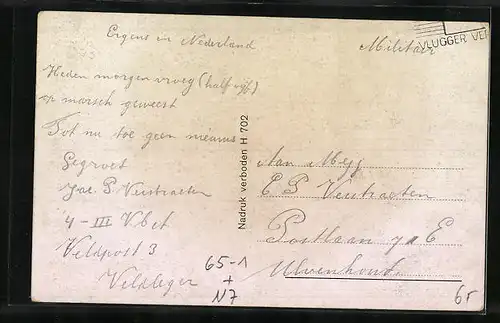 Ergens in Nederland
Militair
VLUGGER VER
Heden morgen vroeg (half vijf)
op marsch geweest
Tot nu toe geen nieuws
Gegroet
Jac. P. Verstraeten
4 - III
Veldpost 3
Veldleger
Nadruk verboden H 702
Aan Mej
C P Verstraeten
Postlaan E
Ulvenhout
65-1
+
N7
65